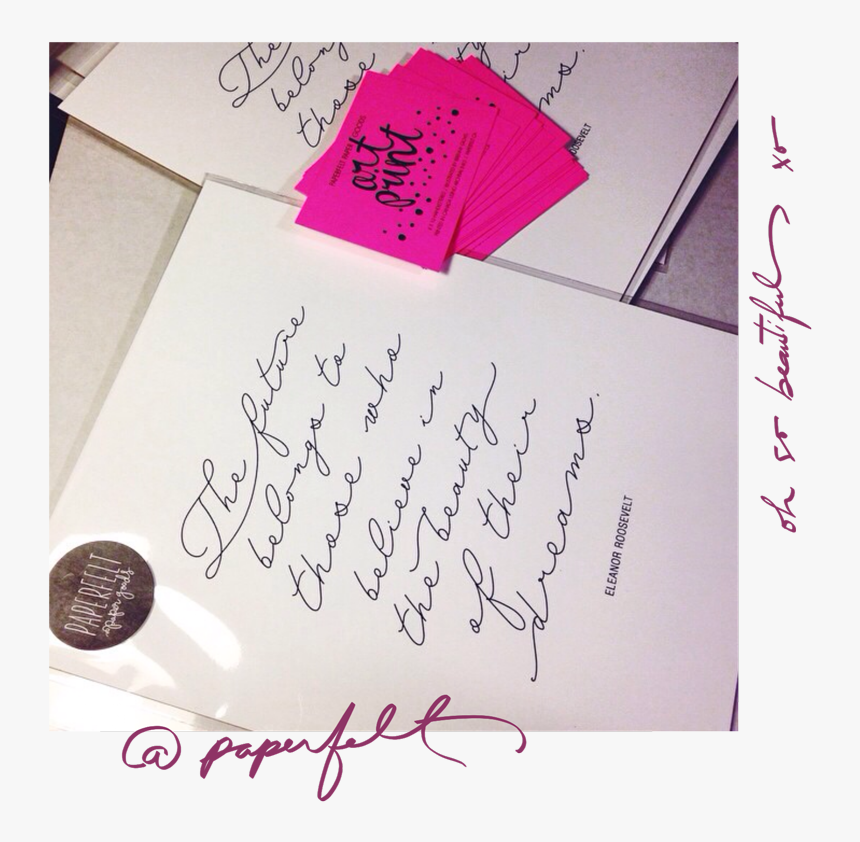 The
belong
those
ty
ir
ms.
OOSEVELT
PAPERFELT PAPER GOODS
art
print
The future
belongs to
those who
believe in
the beauty
of their
dreams.
ELEANOR ROOSEVELT
PAPERFELT
paper goods
@paperfelt
oh so beautiful xo